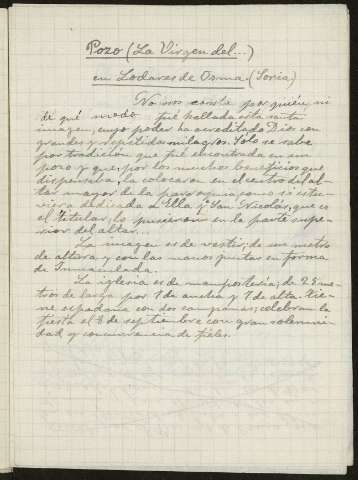 Pozo (La Virgen del...)
en Lodares de Osma. (Soria)
No nos consta por quién, ni
de qué modo fué hallada esta santa
imagen, cuyo poder ha acreditado Dios con
grandes y repetidos milagros. Solo se sabe
por tradición que fué encontrada en un
pozo y que por los muchos beneficios que
dispensaba, la colocaron en el centro del al-
tar mayor de la parroquia, como si estu-
viera dedicada a Ella y a San Nicolás, que es
el titular, lo pusieron en la parte supe-
rior del altar...
La imagen es de vestir; de un metro
de altura y con las manos juntas en forma
de Inmaculada.
La iglesia es de mampostería; de 25 me-
tros de larga por 7 de ancha y 7 de alta. Tie-
ne espadaña con dos campanas; celebran la
fiesta el 8 de septiembre con gran solemni-
dad y concurrencia de fieles.